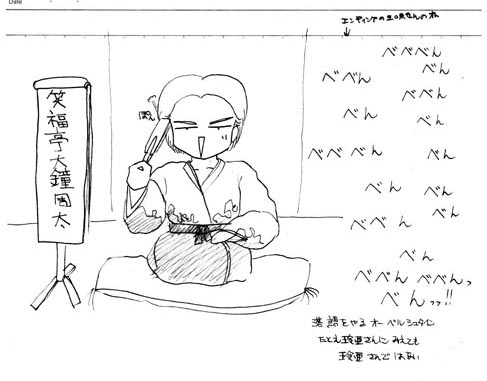 Date
エンディングの三味せんの
べべべん
べん
べべん
べべん
べん
べん
べべべん
べん
べん
べん
べん
べべん
べん
べべん べべんっ
べんッッ!!
笑福亭大鐘
ぽん
落語をやる オーベルシュタイン
たとえ玲亜さんに みえても
玲亜さんではない